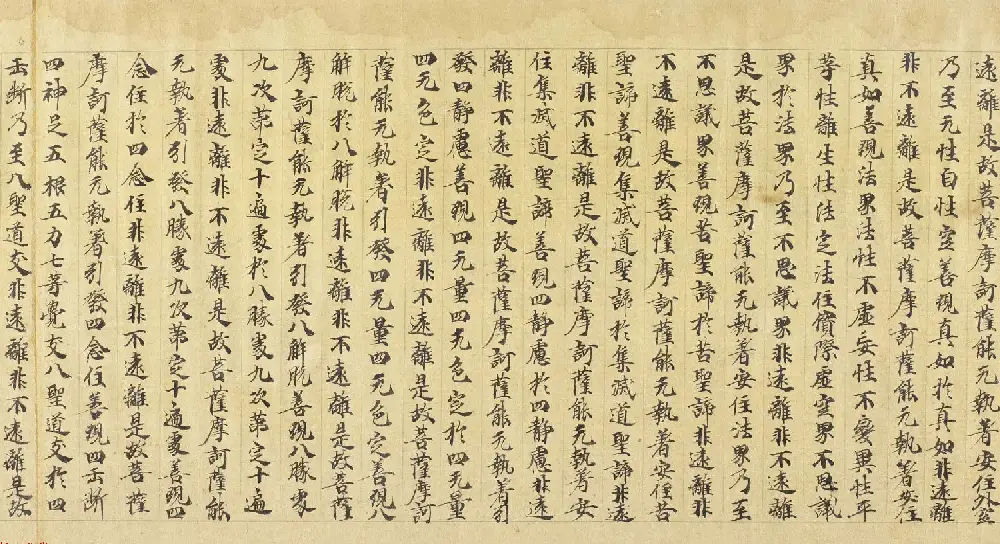 遠離是故菩薩摩訶薩能无執著安住外空
乃至无性自性空善現真如於真如非遠離
非不遠離是故菩薩摩訶薩能无執著安住
真如善現法界法性不虛妄性不變異性平
等性離生性法定法住實際虛空界不思議
界於法界乃至不思議界非遠離非不遠離
是故菩薩摩訶薩能无執著安住法界乃至
不思議界善現苦聖諦於苦聖諦非遠離非
不遠離是故菩薩摩訶薩能无執著安住苦
聖諦善現集滅道聖諦於集滅道聖諦非遠
離非不遠離是故菩薩摩訶薩能无執著安
住集滅道聖諦善現四靜慮於四靜慮非遠
離非不遠離是故菩薩摩訶薩能无執著引
發四靜慮善現四无量四无色定於四无量
四无色定非遠離非不遠離是故菩薩摩訶
薩能无執著引發四无量四无色定善現八
解脫於八解脫非遠離非不遠離是故菩薩
摩訶薩能无執著引發八解脫善現八勝處
九次第定十遍處於八勝處九次第定十遍
處非遠離非不遠離是故菩薩摩訶薩能
无執著引發八勝處九次第定十遍處善現四
念住於四念住非遠離非不遠離是故菩薩
摩訶薩能无執著引發四念住善現四正斷
四神足五根五力七等覺支八聖道支於四
正斷乃至八聖道支非遠離非不遠離是故